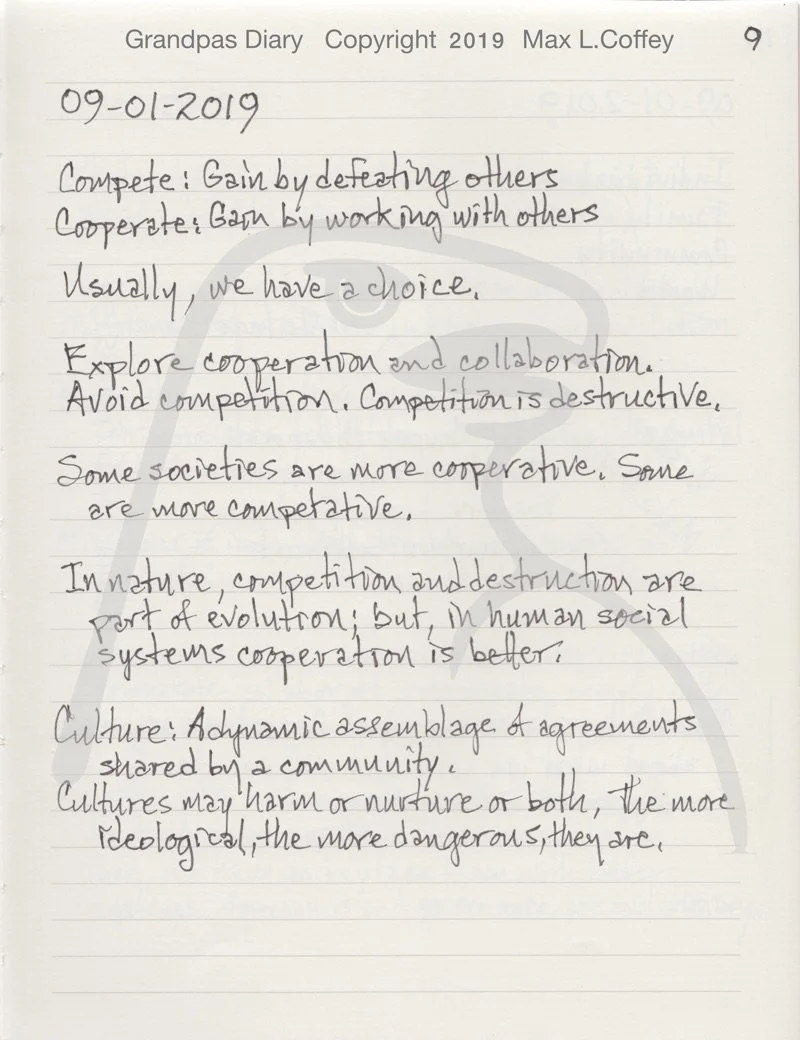 Grandpas Diary Copyright 2019 Max L.Coffey 9
09-01-2019
Compete: Gain by defeating others
Cooperate: Gain by working with others
Usually, we have a choice.
Explore cooperation and collaboration.
Avoid competition. Competition is destructive.
Some societies are more cooperative. Some
are more competative.
In nature, competition and destruction are
part of evolution; but, in human social
systems cooperation is better.
Culture: A dynamic assemblage of agreements
shared by a community.
Cultures may harm or nurture or both, the more
ideological, the more dangerous, they are.